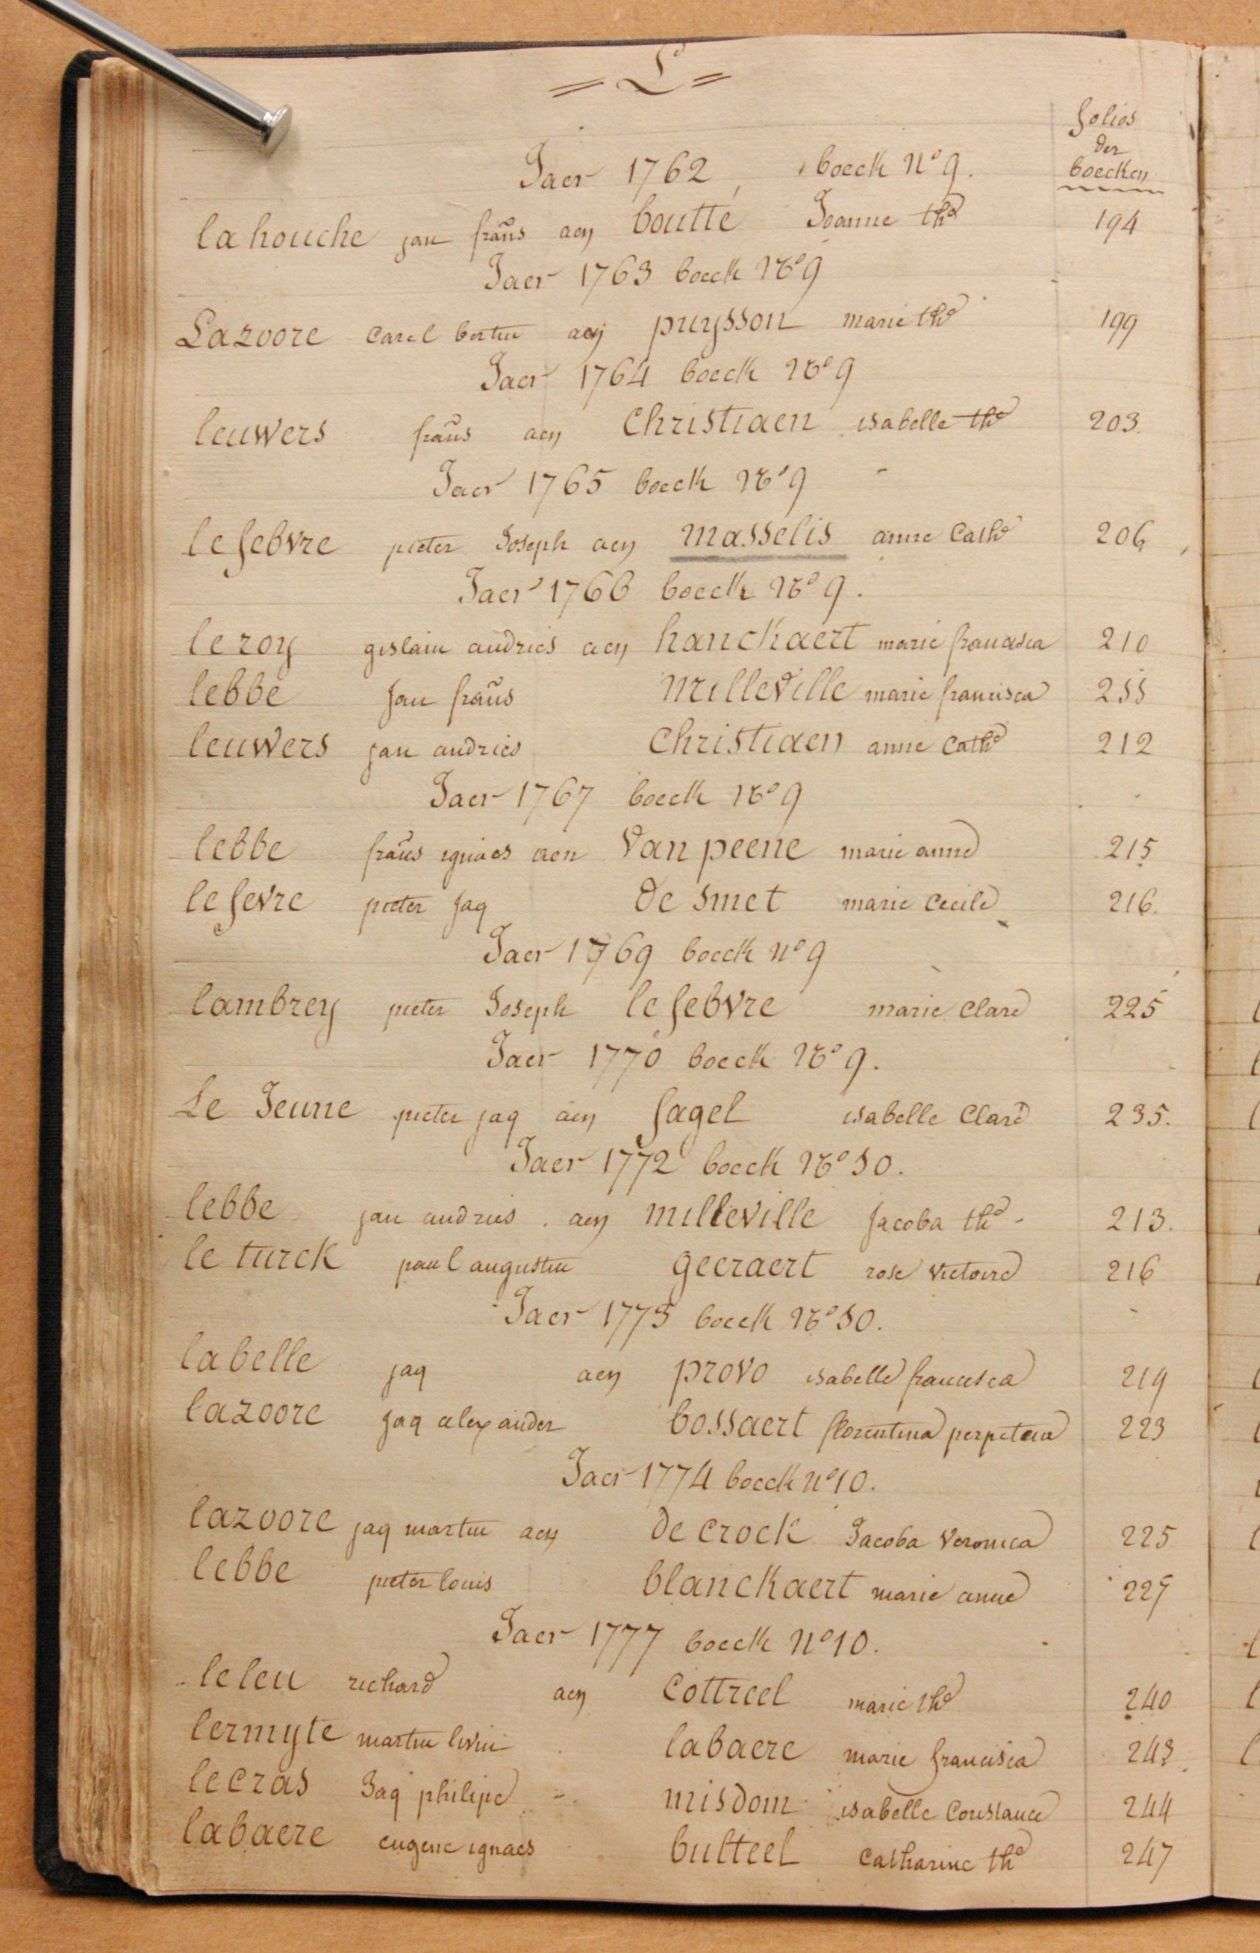 = L =
folios
der
boecken
Jaer 1762, boeck N° 9.
lahouche jan frans aen boutté Joanne the 194
Jaer 1763 boeck N° 9
Lazoore Carel bertin aen puysson marie the 199
Jaer 1764 boeck N° 9
leuwers frans aen Christiaen isabelle the 203
Jaer 1765 boeck N° 9
lefebvre pieter Joseph aen masselis anne Cathe 206
Jaer 1766 boeck N° 9.
leroy gislain andries aen hanckaert marie francisca 210
lebbe Jan frans milleville marie francisca 211
leuwers jan andries Christiaen anne Cathe 212
Jaer 1767 boeck N° 9
lebbe frans ignaes aen Van peene marie anne 215
lefevre pieter Jaq de smet marie Cecile 216.
Jaer 1769 boeck N° 9
lambrey pieter Joseph lefebvre marie Clare 225
Jaer 1770 boeck N° 9.
Le Jeune pieter jaq aen fagel isabelle Clare 235.
Jaer 1772 boeck N° 10.
lebbe jan andries aen milleville Jacoba the 213.
le turck paul augustin geeraert rose victoire 216
Jaer 1773 boeck N° 10.
labelle jaq aen provo isabelle francisca 219
lazoore Jaq alexander bossaert florentina perpetua 223
Jaer 1774 boeck N° 10.
lazoore jaq martin aen de crock Jacoba Veronica 225
lebbe pieter louis blanckaert marie anne 227
Jaer 1777 boeck N° 10.
leleu richard aen Cottreel marie the 240
lermyte martin livin labaere marie francisca 243
lecras Jaq philipe misdom isabelle Constance 244
labaere eugene ignaes bulteel Catharine the 247